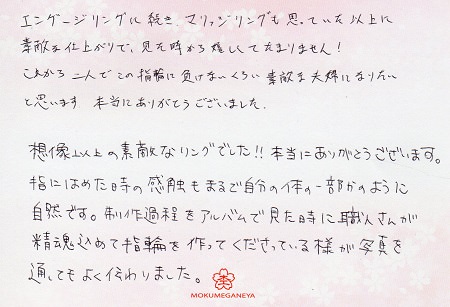 エンゲージリングに続き、マリッジリングも思っていた以上に
素敵な仕上がりで、見た時から嬉しくてたまりません！
これから二人でこの指輪に負けないくらい素敵な夫婦になりたい
と思います 本当にありがとうございました.
想像以上の素敵なリングでした!! 本当にありがとうございます。
指にはめた時の感触もまるで自分の体の一部かのように
自然です。制作過程をアルバムで見た時に職人さんが
精魂込めて指輪を作ってくださっている様が写真を
通してもよく伝わりました。
MOKUMEGANEYA